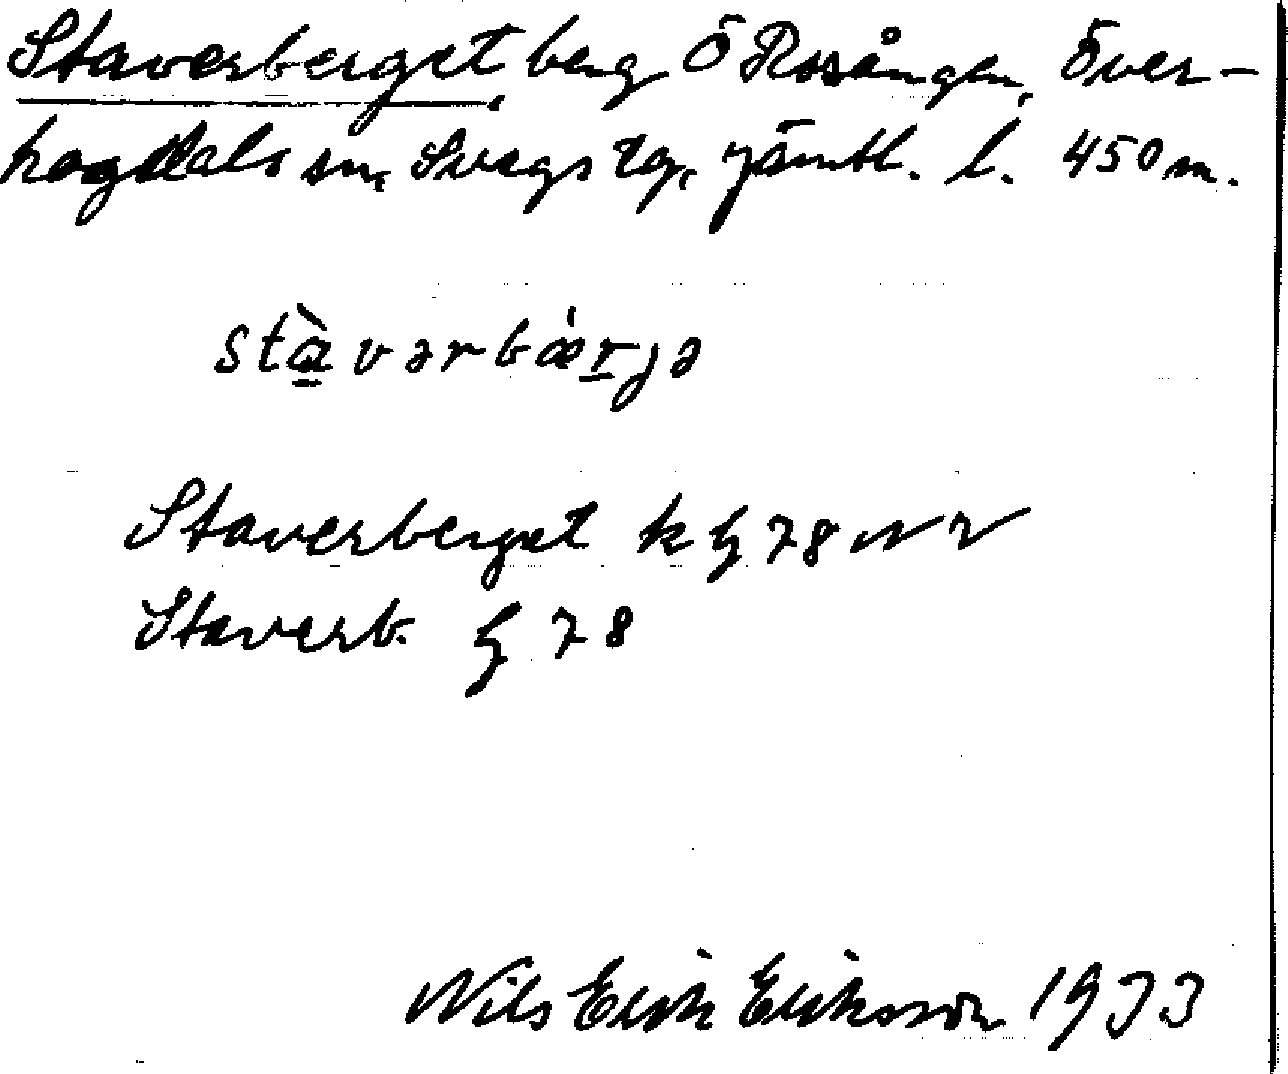 Staverberget, berg Ö Rosången, Över-
hogdals sn, Svegs tg, Jämtl. l. 450 m.
stàvərbǽrjə
Staverberget k 78
Staverb. 78
Nils Erik Eriksson 1933